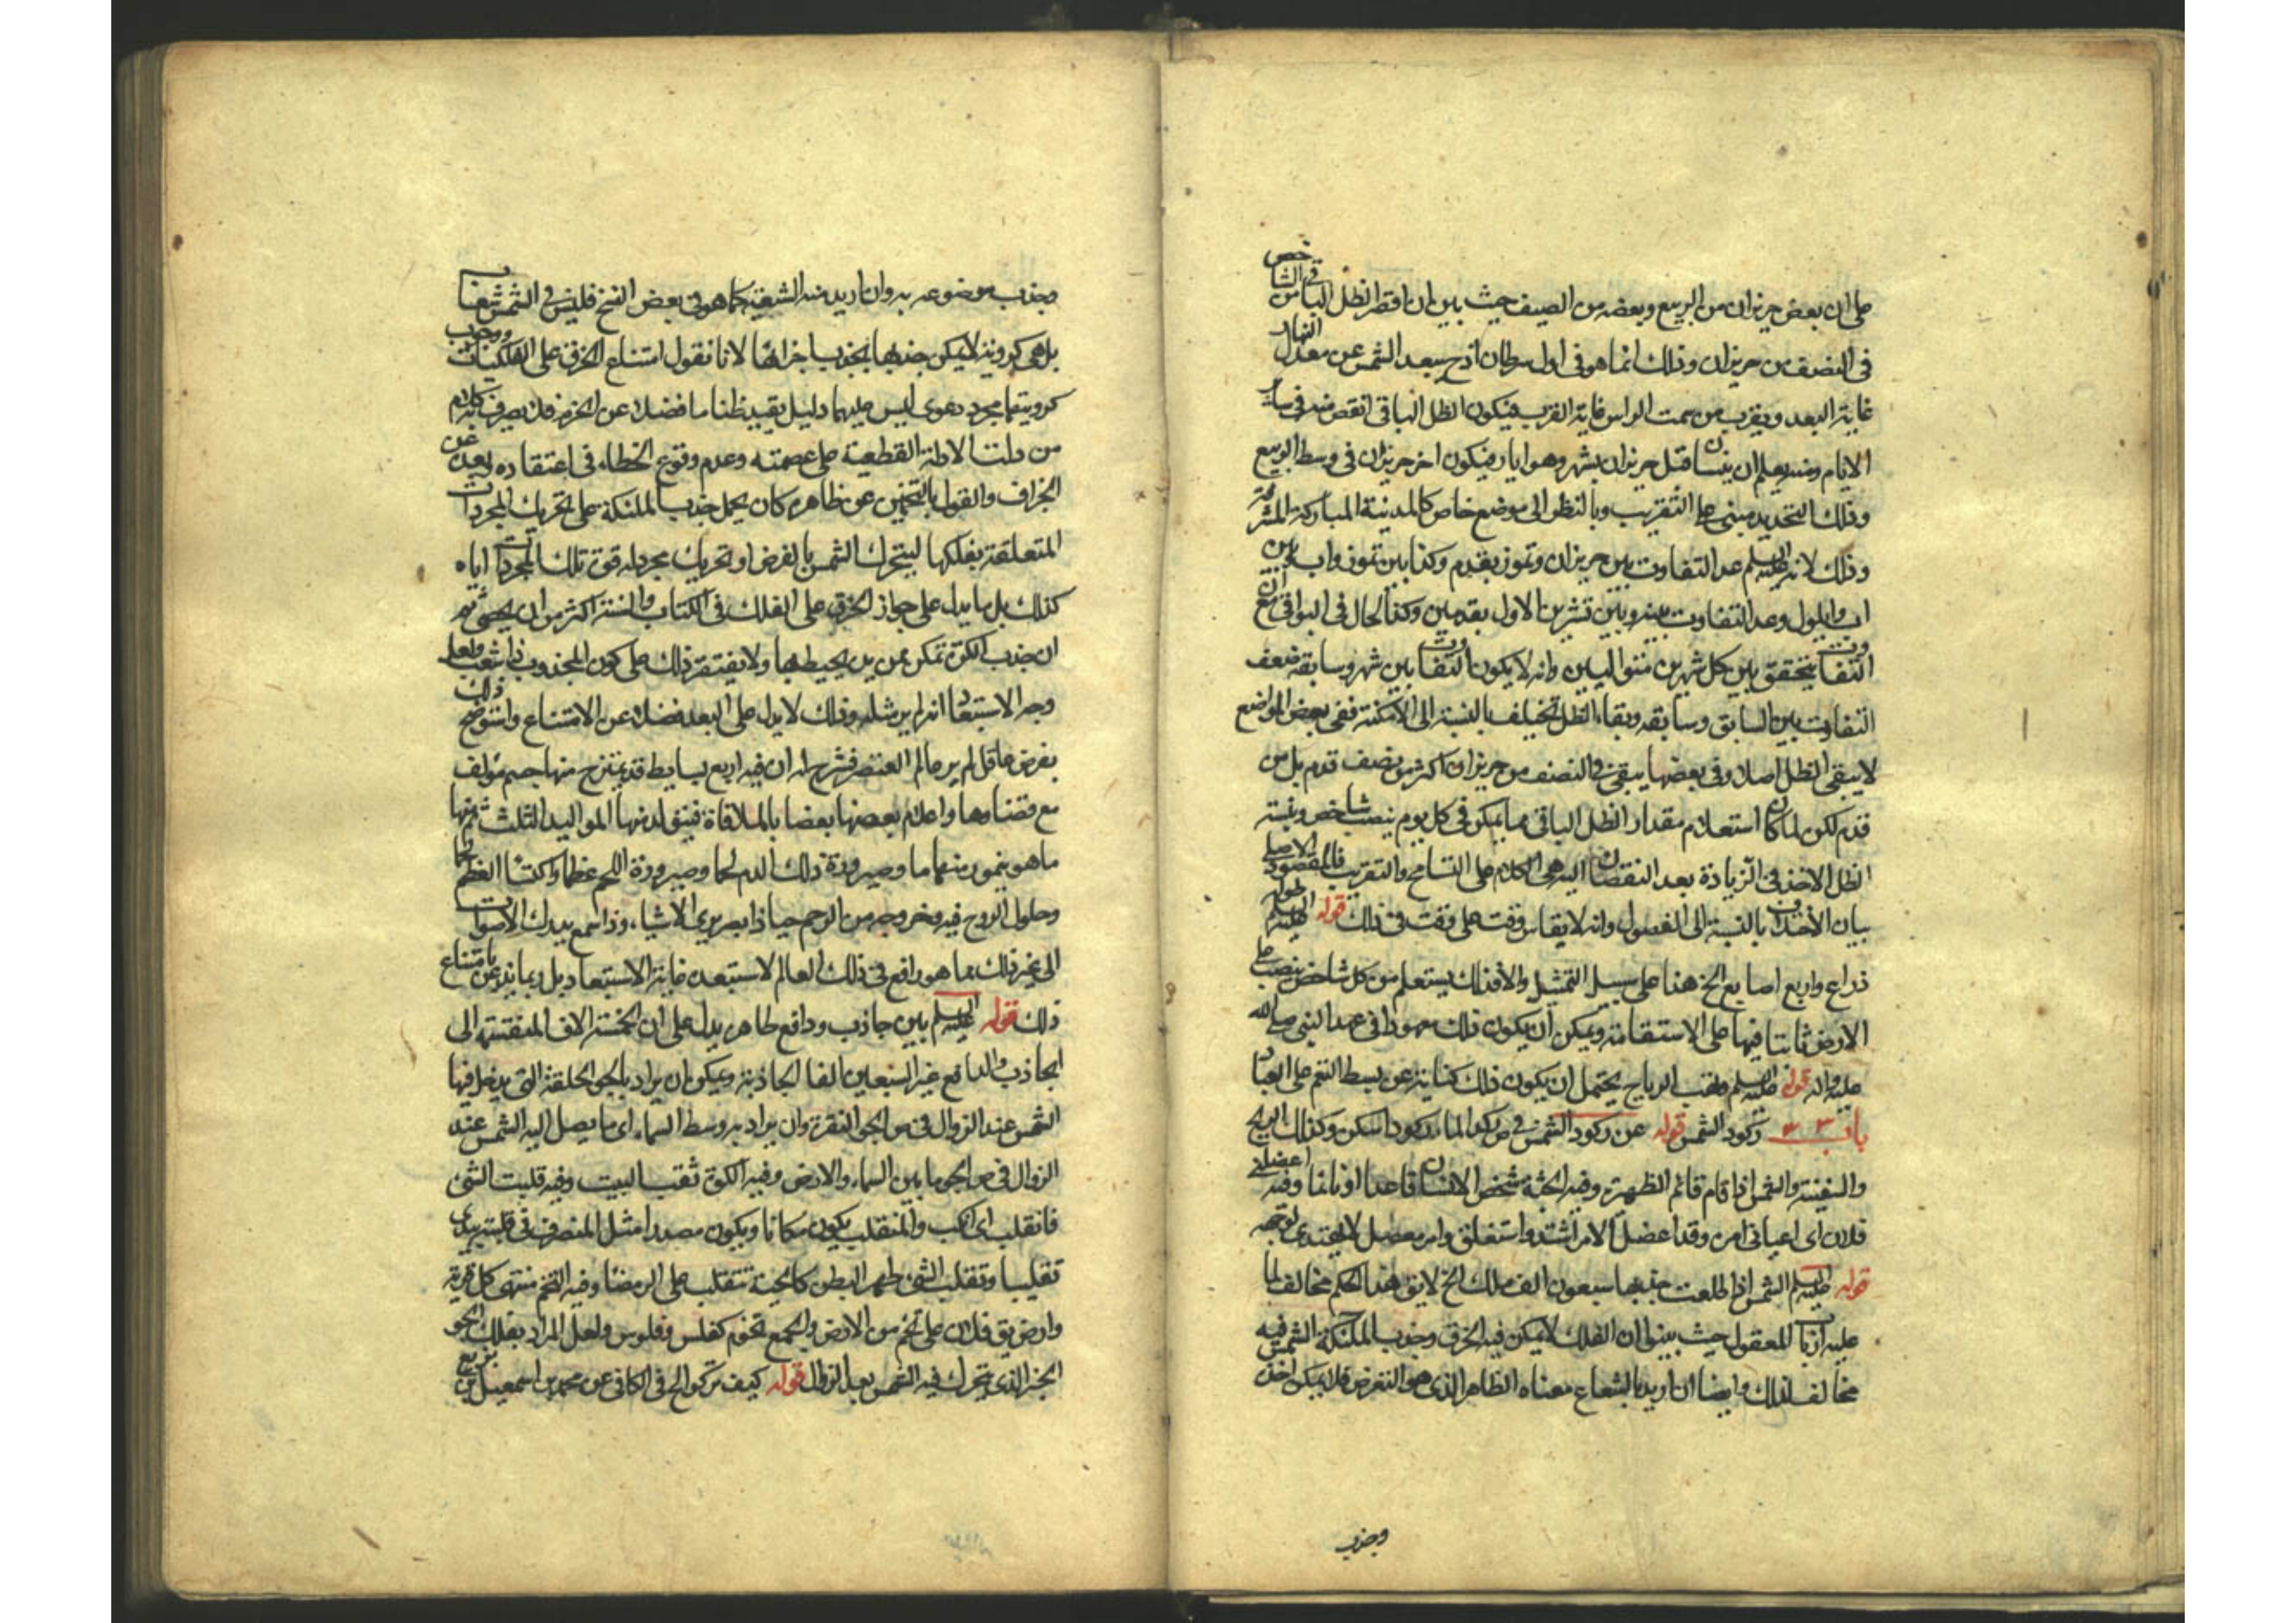 على ان بعض حزيران من الربيع وبعضه من الصيف حيث بين ان اقصر الظل الباقى فى الشاخص
فى النصف من حزيران وذلك انما هو فى اول سرطان اذ ح يبعد الشمس عن معدل النهار
غاية البعد ويقرب من سمت الراس غاية القرب فيكون الظل الباقى انقص منه فى سائر
الايام ومنه يعلم ان نيسان قبل حزيران بشهر وهو ايار فيكون اخر حزيران فى وسط الربيع
وذلك التحديد مبنى على التقريب وبالنظر الى موضع خاص كالمدينة المباركة المشرفة
وذلك لانه عليه السلم عد التفاوت بين حزيران وتموز بقدم وكذا بين تموز واب وبين
اب وايلول وعد التفاوت بينه وبين تشرين الاول بقدمين وكذا الحال فى البواقى مع ان
التفاوت يتحقق بين كل شهرين متواليين وانه لا يكون التفاوت بين شهر وسابقه ضعف
التفاوت بين السابق وسابقه وبقاء الظل تختلف بالنسبة الى الامكنة ففى بعض المواضع
لا يبقى الظل اصلا وفى بعضها يبقى فى النصف من حزيران اكثر من نصف قدم بل من
قدم لكن لما كان استعلام مقدار الظل الباقى مما يمكن فى كل يوم بنصب شاخص ونسبة
الظل الاخذ فى الزيادة بعد النقصان اليه هى الكلام على التسامح والتقريب فالمقصود الاصلى
بيان الاختلاف بالنسبة الى الفصول وانه لا يقاس وقت على وقت فى ذلك قوله عليه السلم
ذراع واربع اصابع الخ هذا على سبيل التمثيل والا فذلك يستعلم من كل شاخص ينصب على
الارض ثابتا فيها على الاستقامة ويمكن ان يكون ذلك معهودا فى عهد النبى صلى الله
عليه واله قوله عليه السلم وتهب الرياح يحتمل ان يكون ذلك كناية عن بسط النعم على العباد
باب ركود الشمس قوله عن ركود الشمس فى ص ركد الماء ركودا سكن وكذلك الريح
والسفينة والشمس اذا قام قائم الظهيرة وفيه الجثة شخص الانسان قاعدا او نائما وفيه اعضلنى
فلان اى اعيانى امره وقد اعضل الامر اشتد واستغلق وامر معضل لا يهتدى لوجهه
قوله عليه السلم الشمس اذا طلعت جذبها سبعون الف ملك الخ لا يق هذا الحكم مخالف لما
عليه ارباب المعقول حيث بينوا ان الفلك لا يمكن فيه الخرق وجذب الملئكة الشمس فيه
مخالف لذلك وايضا ان اريد بالشعاع معناه الظاهر الذى هو العرض فلا يمكن اخذه
وجذب
وجذب موضوعه به وان اريد منه الشعبة كما هو فى بعض النسخ فليس فى الشمس شعبات
بل هى كروية لا يمكن جذبها بجذب اجزائها لانا نقول امتناع الخرق على الفلكيات ووجوب
كرويتها مجرد دعوى ليس عليهما دليل يفيد ظنا ما فضلا عن الجزم فلا يصرف به كلام
من دلت الادلة القطعية على عصمته وعدم وقوع الخطاء فى اعتقاده وبعده عن
الجزاف والقول بالتخمين عن ظاهره كان يحمل جذب الملئكة على تحريك المجردات
المتعلقة بفلكها ليتحرك الشمس بالعرض او تحريك مجرد له قوة تلك المجردات اياه
كذلك بل ما يدل على جواز الخرق على الفلك فى الكتاب والسنة اكثر من ان يحصى ثم
ان جذب الكرة تمكن ممن يد يحيط بها ولا يفتقر ذلك على كون المجذوب ذا شعب ولعل
وجه الاستبعاد انه لم ير مثله وذلك لا يدل على البعد فضلا عن الامتناع واستوضح ذلك
بفرض عاقل لم ير عالم العنصر فشرح له ان فيه اربع بسايط قد يمتزج منها جسم مؤلف
مع تضادها واعدام بعضها بعضا بالملاقاة فيتولد منها المواليد الثلث ثم منها
ما هو ينمو وصيرورة ذلك الدم لحما وصيرورة اللحم عظاما واكتساء العظم لحما
وحلول الروح فيه وخروجه من الرحم حيا ذا بصر يرى الاشياء وذا سمع يدرك الاصوات
الى غير ذلك مما هو واقع فى ذلك العالم لاستبعده غاية الاستبعاد بل ربما يذعن بامتناع
ذلك قوله عليه السلم بين جاذب ودافع ظاهره يدل على ان الخمسة الاف المنقسمة الى
الجاذب والدافع غير السبعين الفا الجاذبة ويمكن ان يراد بالجو الحلقة التى يدخل فيها
الشمس عند الزوال فى ص الجو النقرة وان يراد به وسط السماء اى ما يصل اليه الشمس عند
الزوال فى ص الجو ما بين السماء والارض وفيه الكوة ثقب البيت وفيه قلبت الشئ
فانقلب اى انكب والمنقلب يكون مكانا ويكون مصدرا مثل المنصرف فى قلبته بيدى
تقليبا وتقلب الشئ ظهرا لبطن كالحية تتقلب على الرمضاء وفيه التخم منتهى كل قرية
وارض يق فلان على تخم من الارض والجمع تخوم كفلس وفلوس ولعل المراد بفلك الجو
الجزء الذى يتحرك فيه الشمس بعد الزوال قوله كيف تركع الخ فى الكافى عن محمد بن اسمعيل بن بزيع